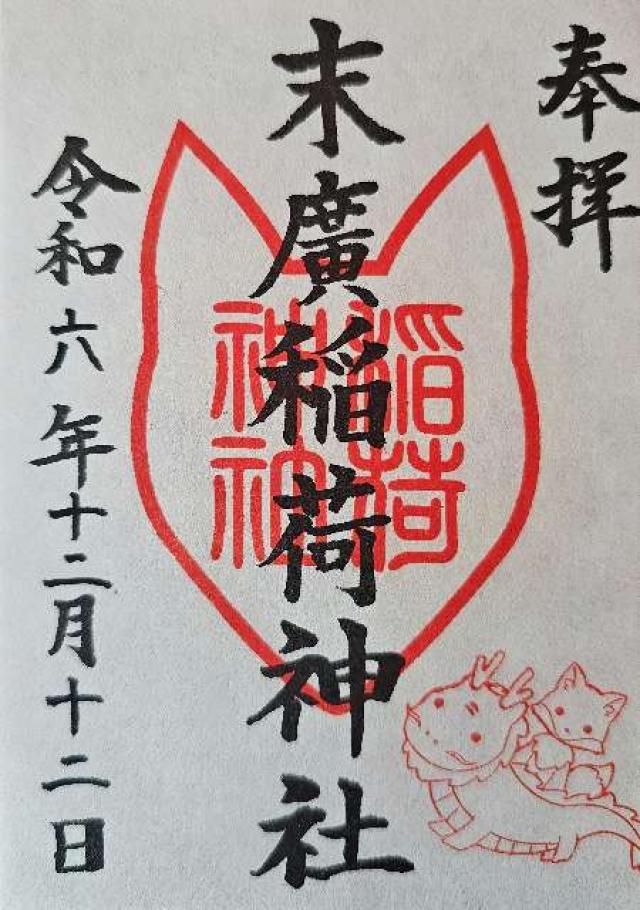 奉拝
末廣稲荷神社
稲荷
神社
令和六年十二月十二日